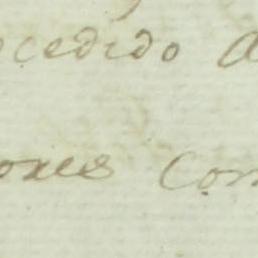 ocedido a
ones Con